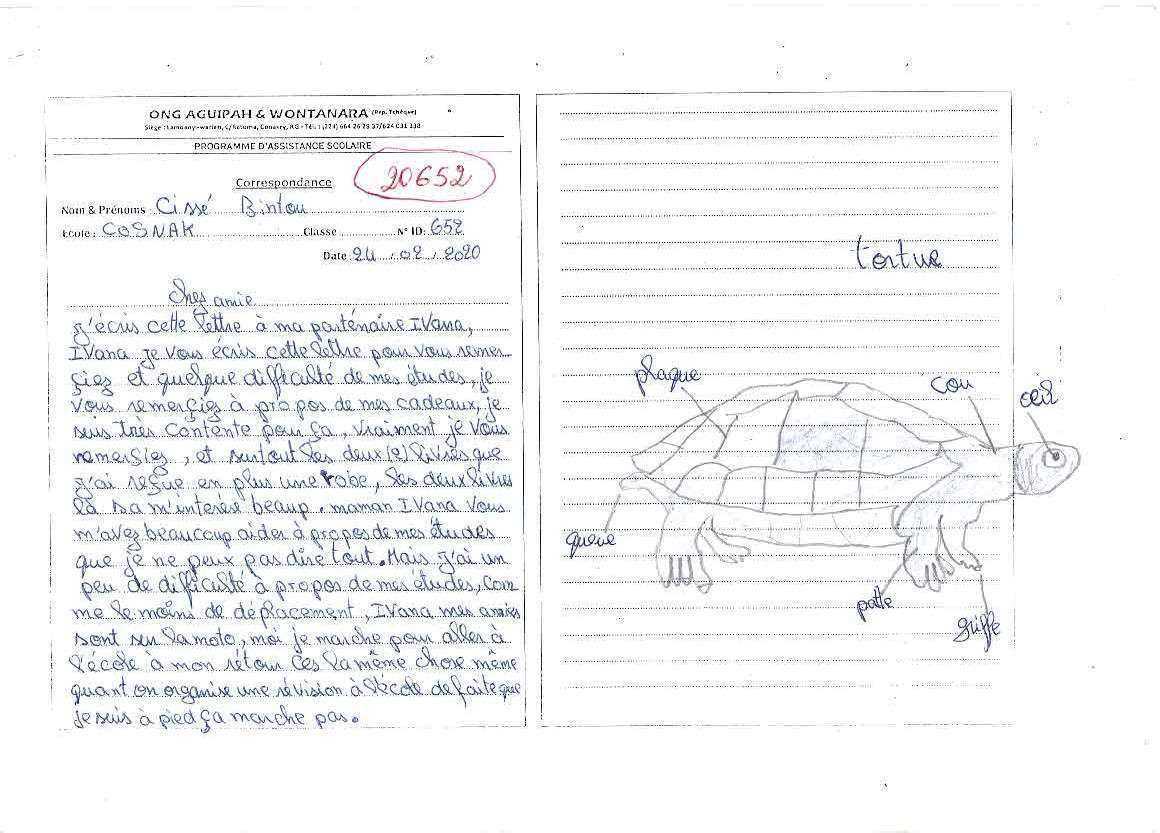 ONG AGUIPAH & WONTANARA (Rep. Tchèque)
PROGRAMME D'ASSISTANCE SCOLAIRE
20652
Correspondance
Nom & Prénoms : Cissé Bintou
Ecole : COSNAK Classe N° ID: 652
Date 24 / 02 / 2020
Cher amie
J'écris cette lettre à ma parténaire IVana,
IVana je vous écris cette lettre pour vous remer
çiez et quelque difficulté de mes études, je
vous remerçiez à propos de mes cadeaux, je
suis très contente pour ça, vraiment je vous
remersiez, et surtout les deux (2) livres que
j'ai reçue en plus une robe, les deux livres
là sa m'intérèse beaup. maman IVana vous
m'avez beaucoup aider à propos de mes études
que je ne peux pas dire tout. Mais j'ai un
peu de difficulté à propos de mes études, Com
me le moins de déplacement, IVana mes amies
sont sur la moto, moi je marche pour aller à
l'école à mon rétour ces la même chose même
quant on organise une révision à l'école de faite que
je suis à pied ça marche pas.
tortue
plaque
cou
œil
queue
patte
griffe